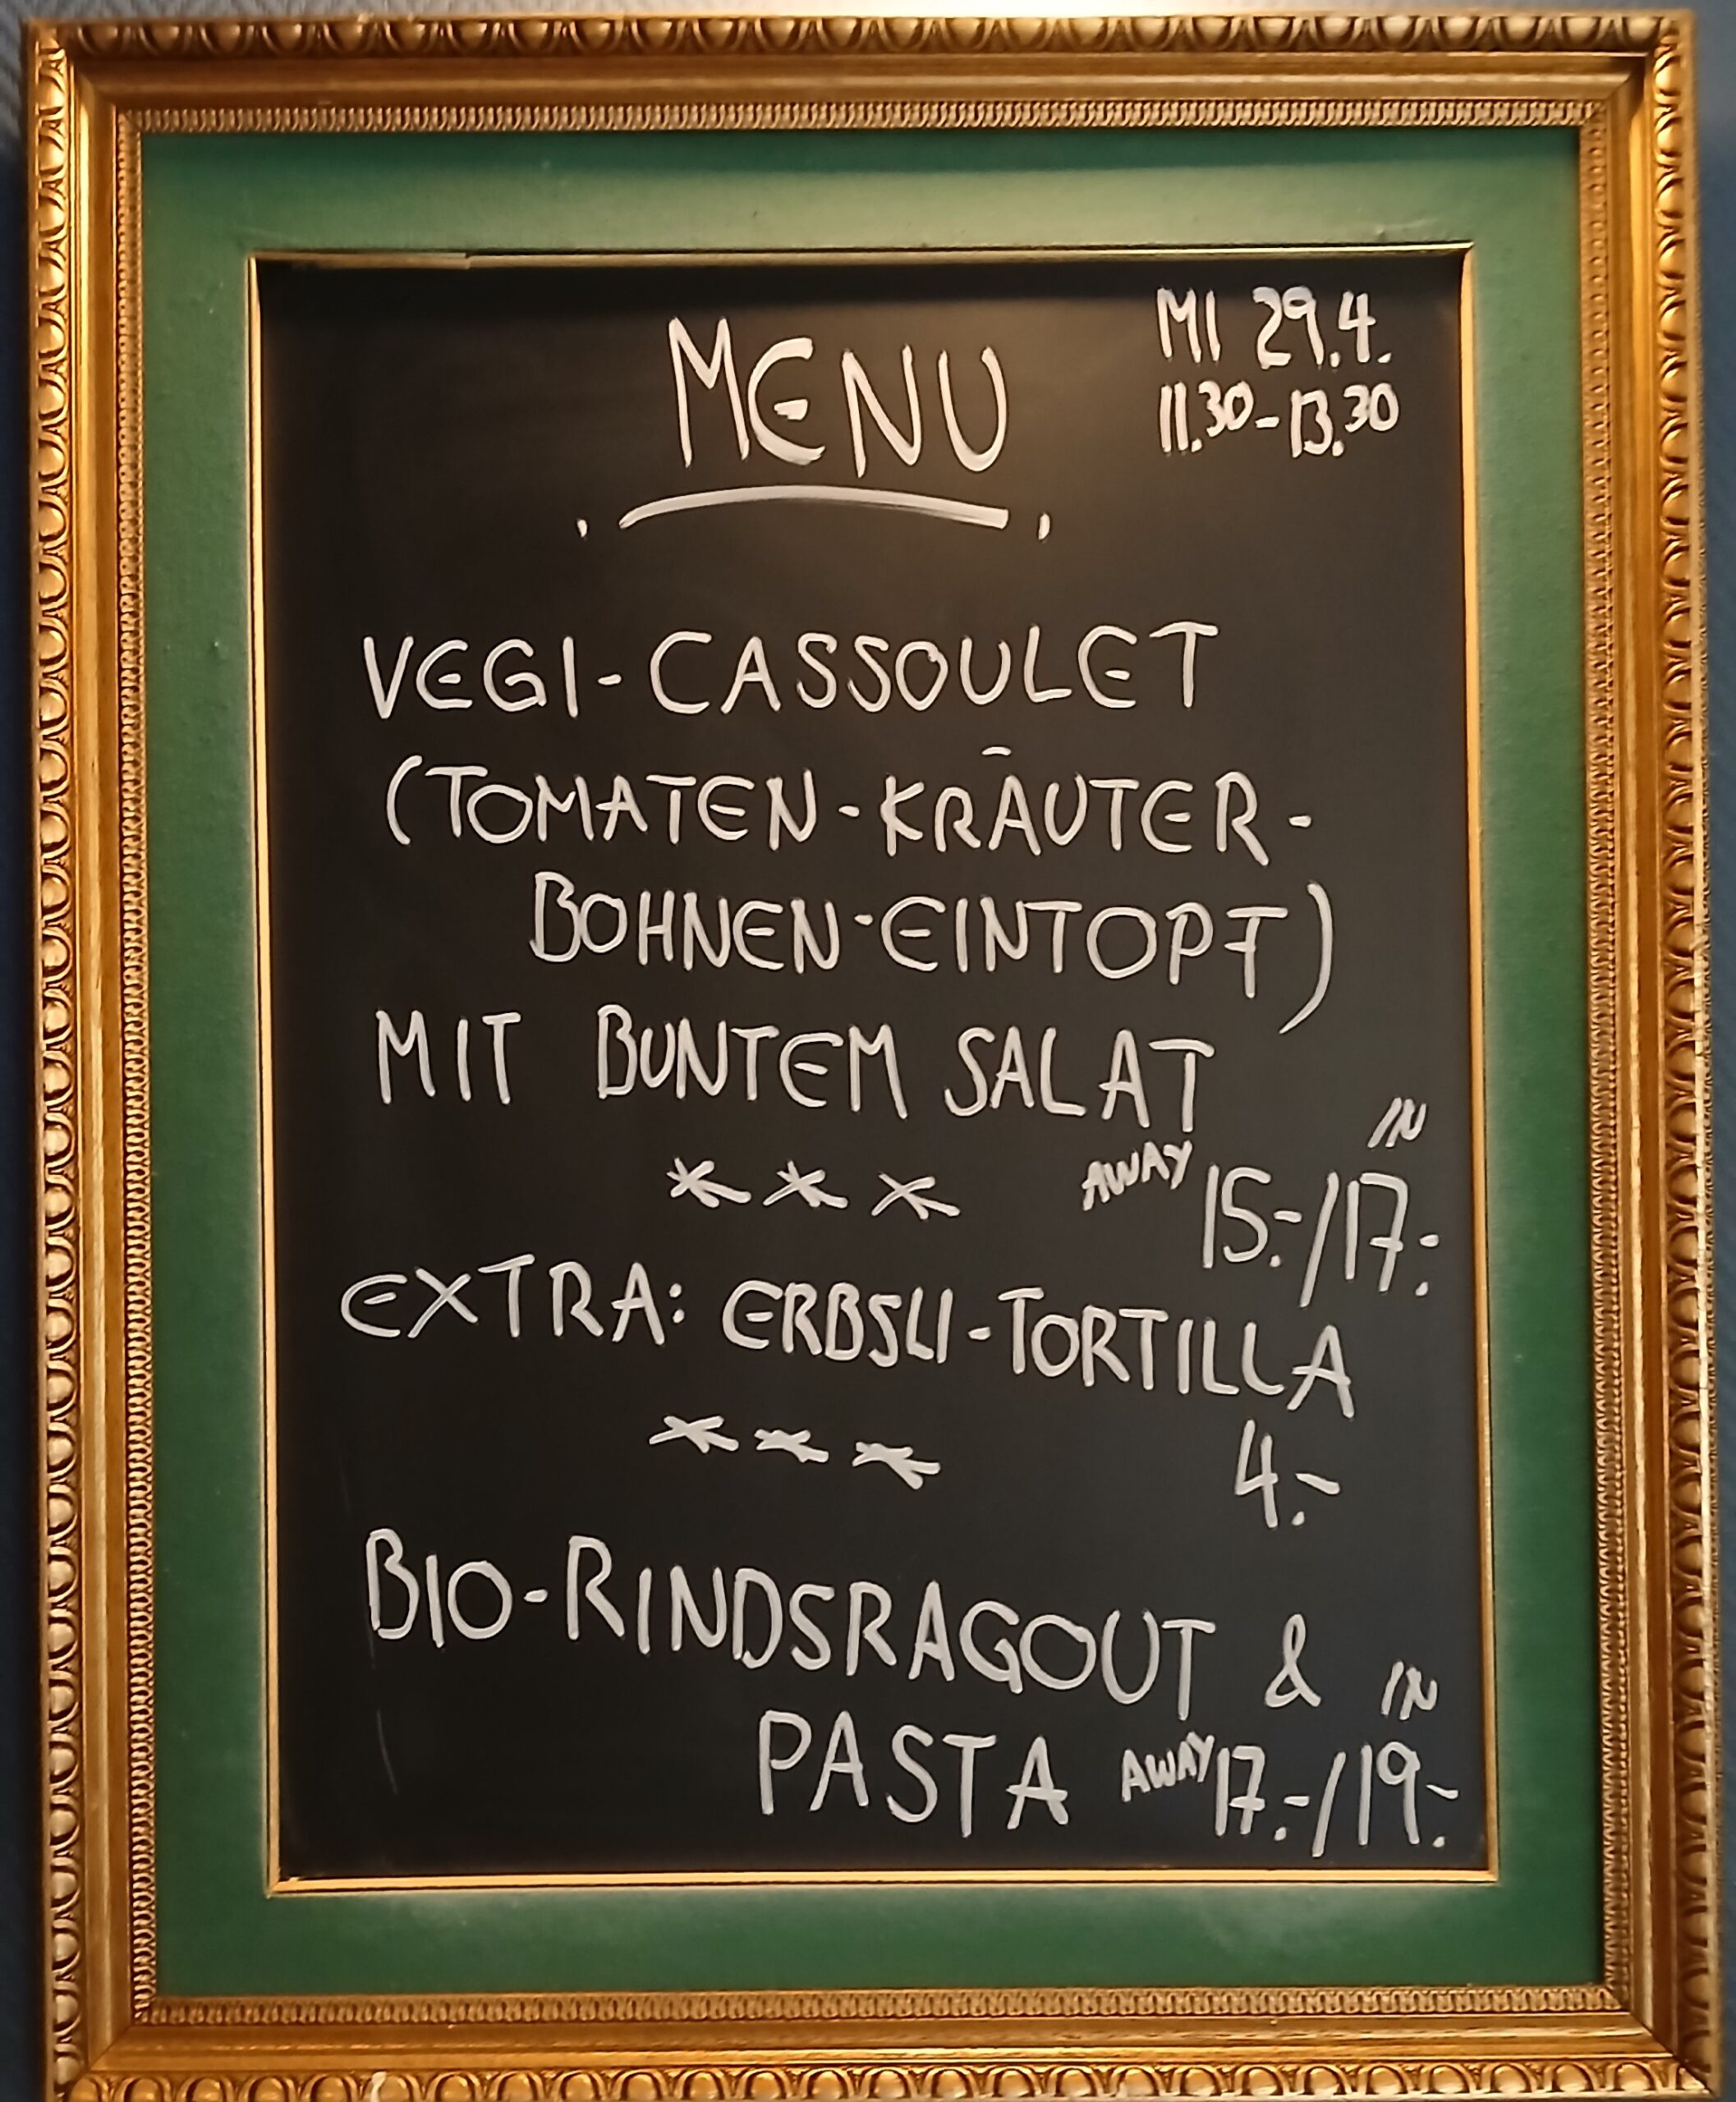 MENU
MI 29.4.
11.30-13.30
VEGI-CASSOULET
(TOMATEN-KRÄUTER-
BOHNEN-EINTOPF)
MIT BUNTEM SALAT
IN
*** AWAY 15.-/17.-
EXTRA: ERBSLI-TORTILLA
*** 4.-
BIO-RINDSRAGOUT & IN
PASTA AWAY 17.-/19.-